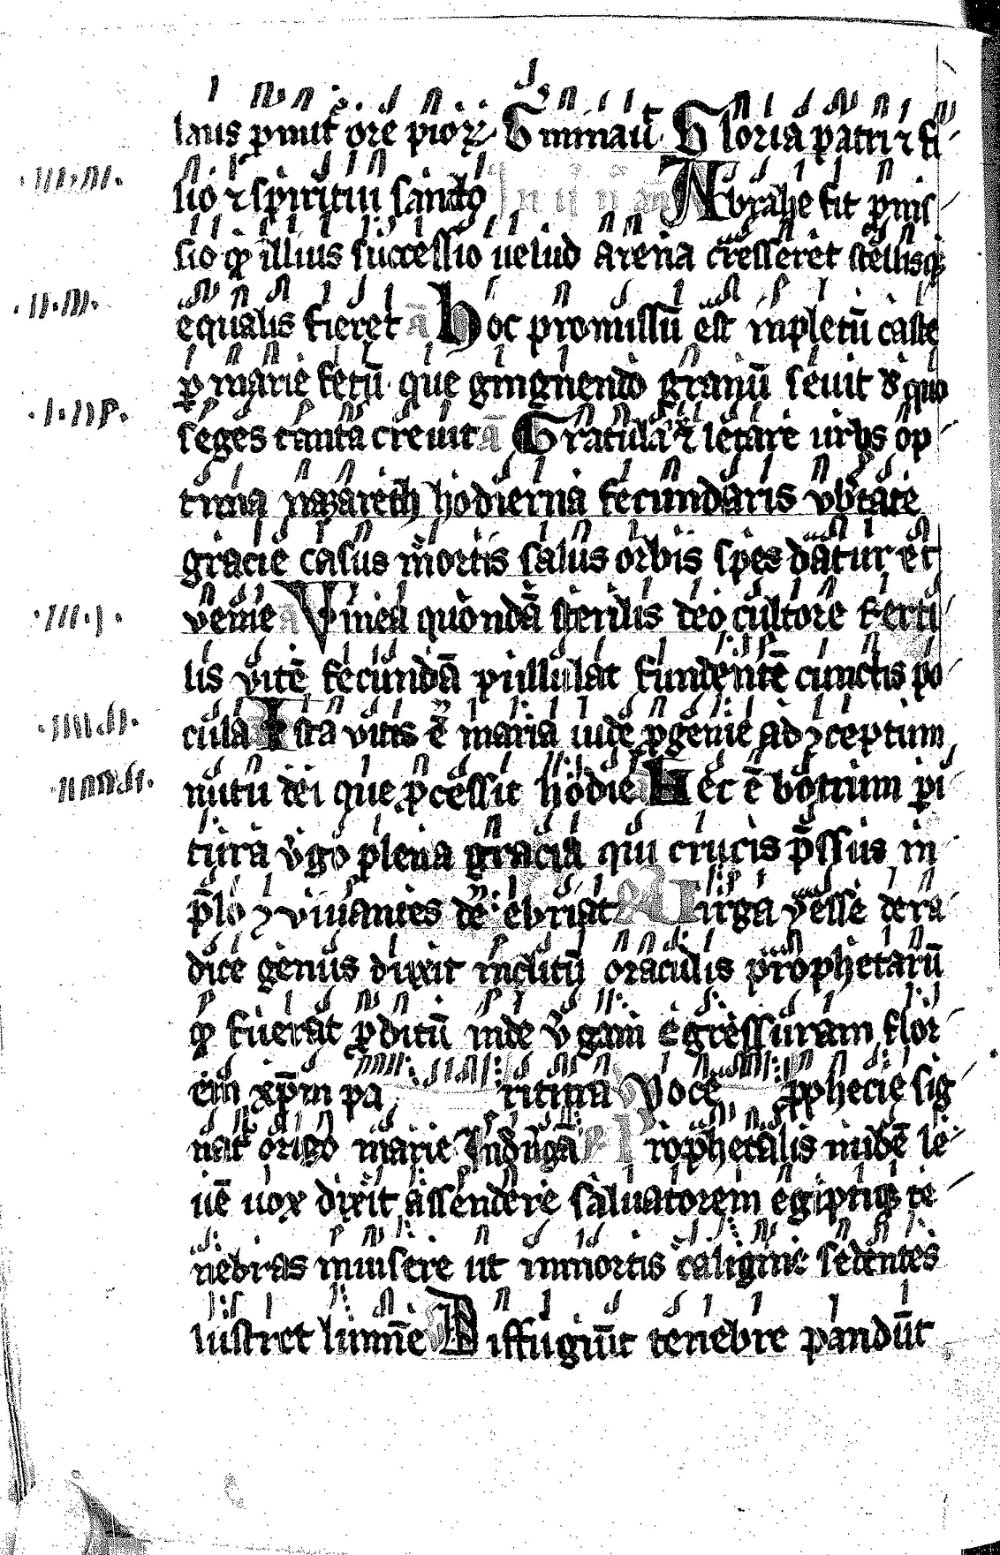 laus ꝓmit᷑ ore pioꝝ G minaū Gloria patri ⁊ fi
lio ⁊ spiritui sancto In ii ā Abrahe fit ꝓmis
sio ꝙ illius successio uelud arena cresseret stellisqꝫ
equalis fieret ā hoc promissū est inpletū caste
ꝑ marie fetū que gingnendo granū seuit de quo
seges tanta creuit ā Gratula᷑ ⁊ letare urbs op
tima nazareth hodierna fecundaris vb̄tate
gracie casus mortis salus orbis spes datur et
venie a Vinea quondā sterilis deo cultore ferti
lis vitē fecundā pullulat fundentē cunctis po
cula Ista vitis ē maria iude ꝓgenie ad ꝯceptum
nutu dei que ꝓcessit hodie hec ē botrum pi
tura v̄go plena gracia qui crucis p̄ssus in
p̄lo ꝯviuantes de ebriat Uirga yesse de ra
dice genus duxit inclitū oraculis prophetarū
ꝙ fuerat ꝓditū inde v̄gam egressuram flor
em xp̄m pa ritura v Voce ꝓphecie sig
nat᷑ origo marie Prophetalis nubē le
uē uox dixit assendere saluatorem egiptiqꝫ te
nebras inuisere ut in mortis caligine sedentes
lustret lumīe Diffugiūt tenebre pandūt